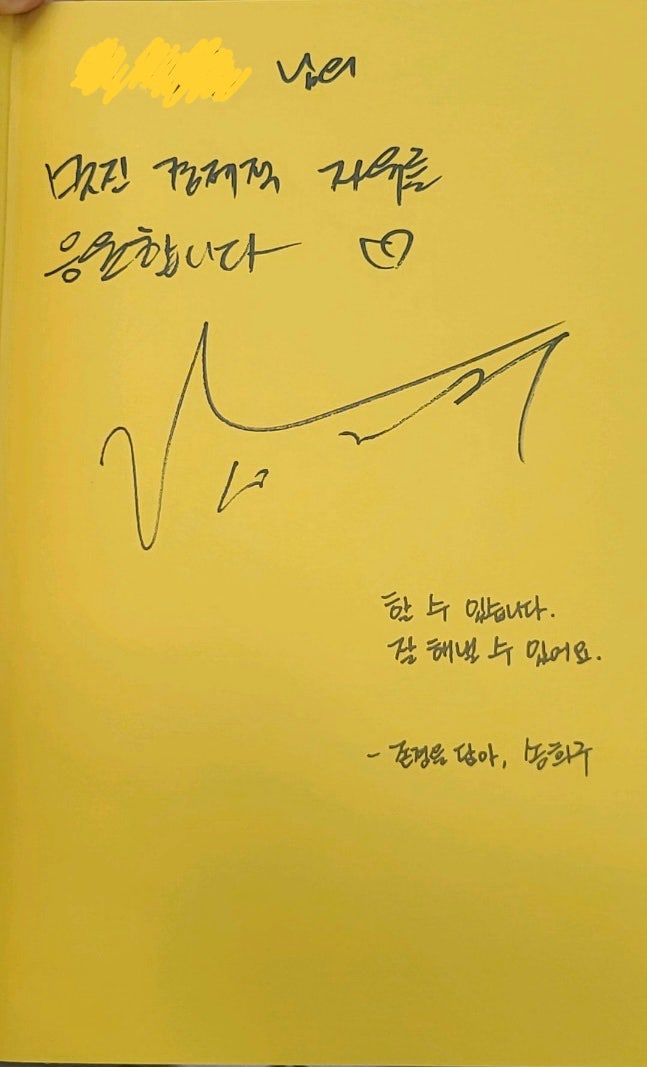 님의
멋진 경제적 자유를
응원합니다 ♡
할 수 있습니다.
잘 해낼 수 있어요.
- 존경을 담아, 송희구